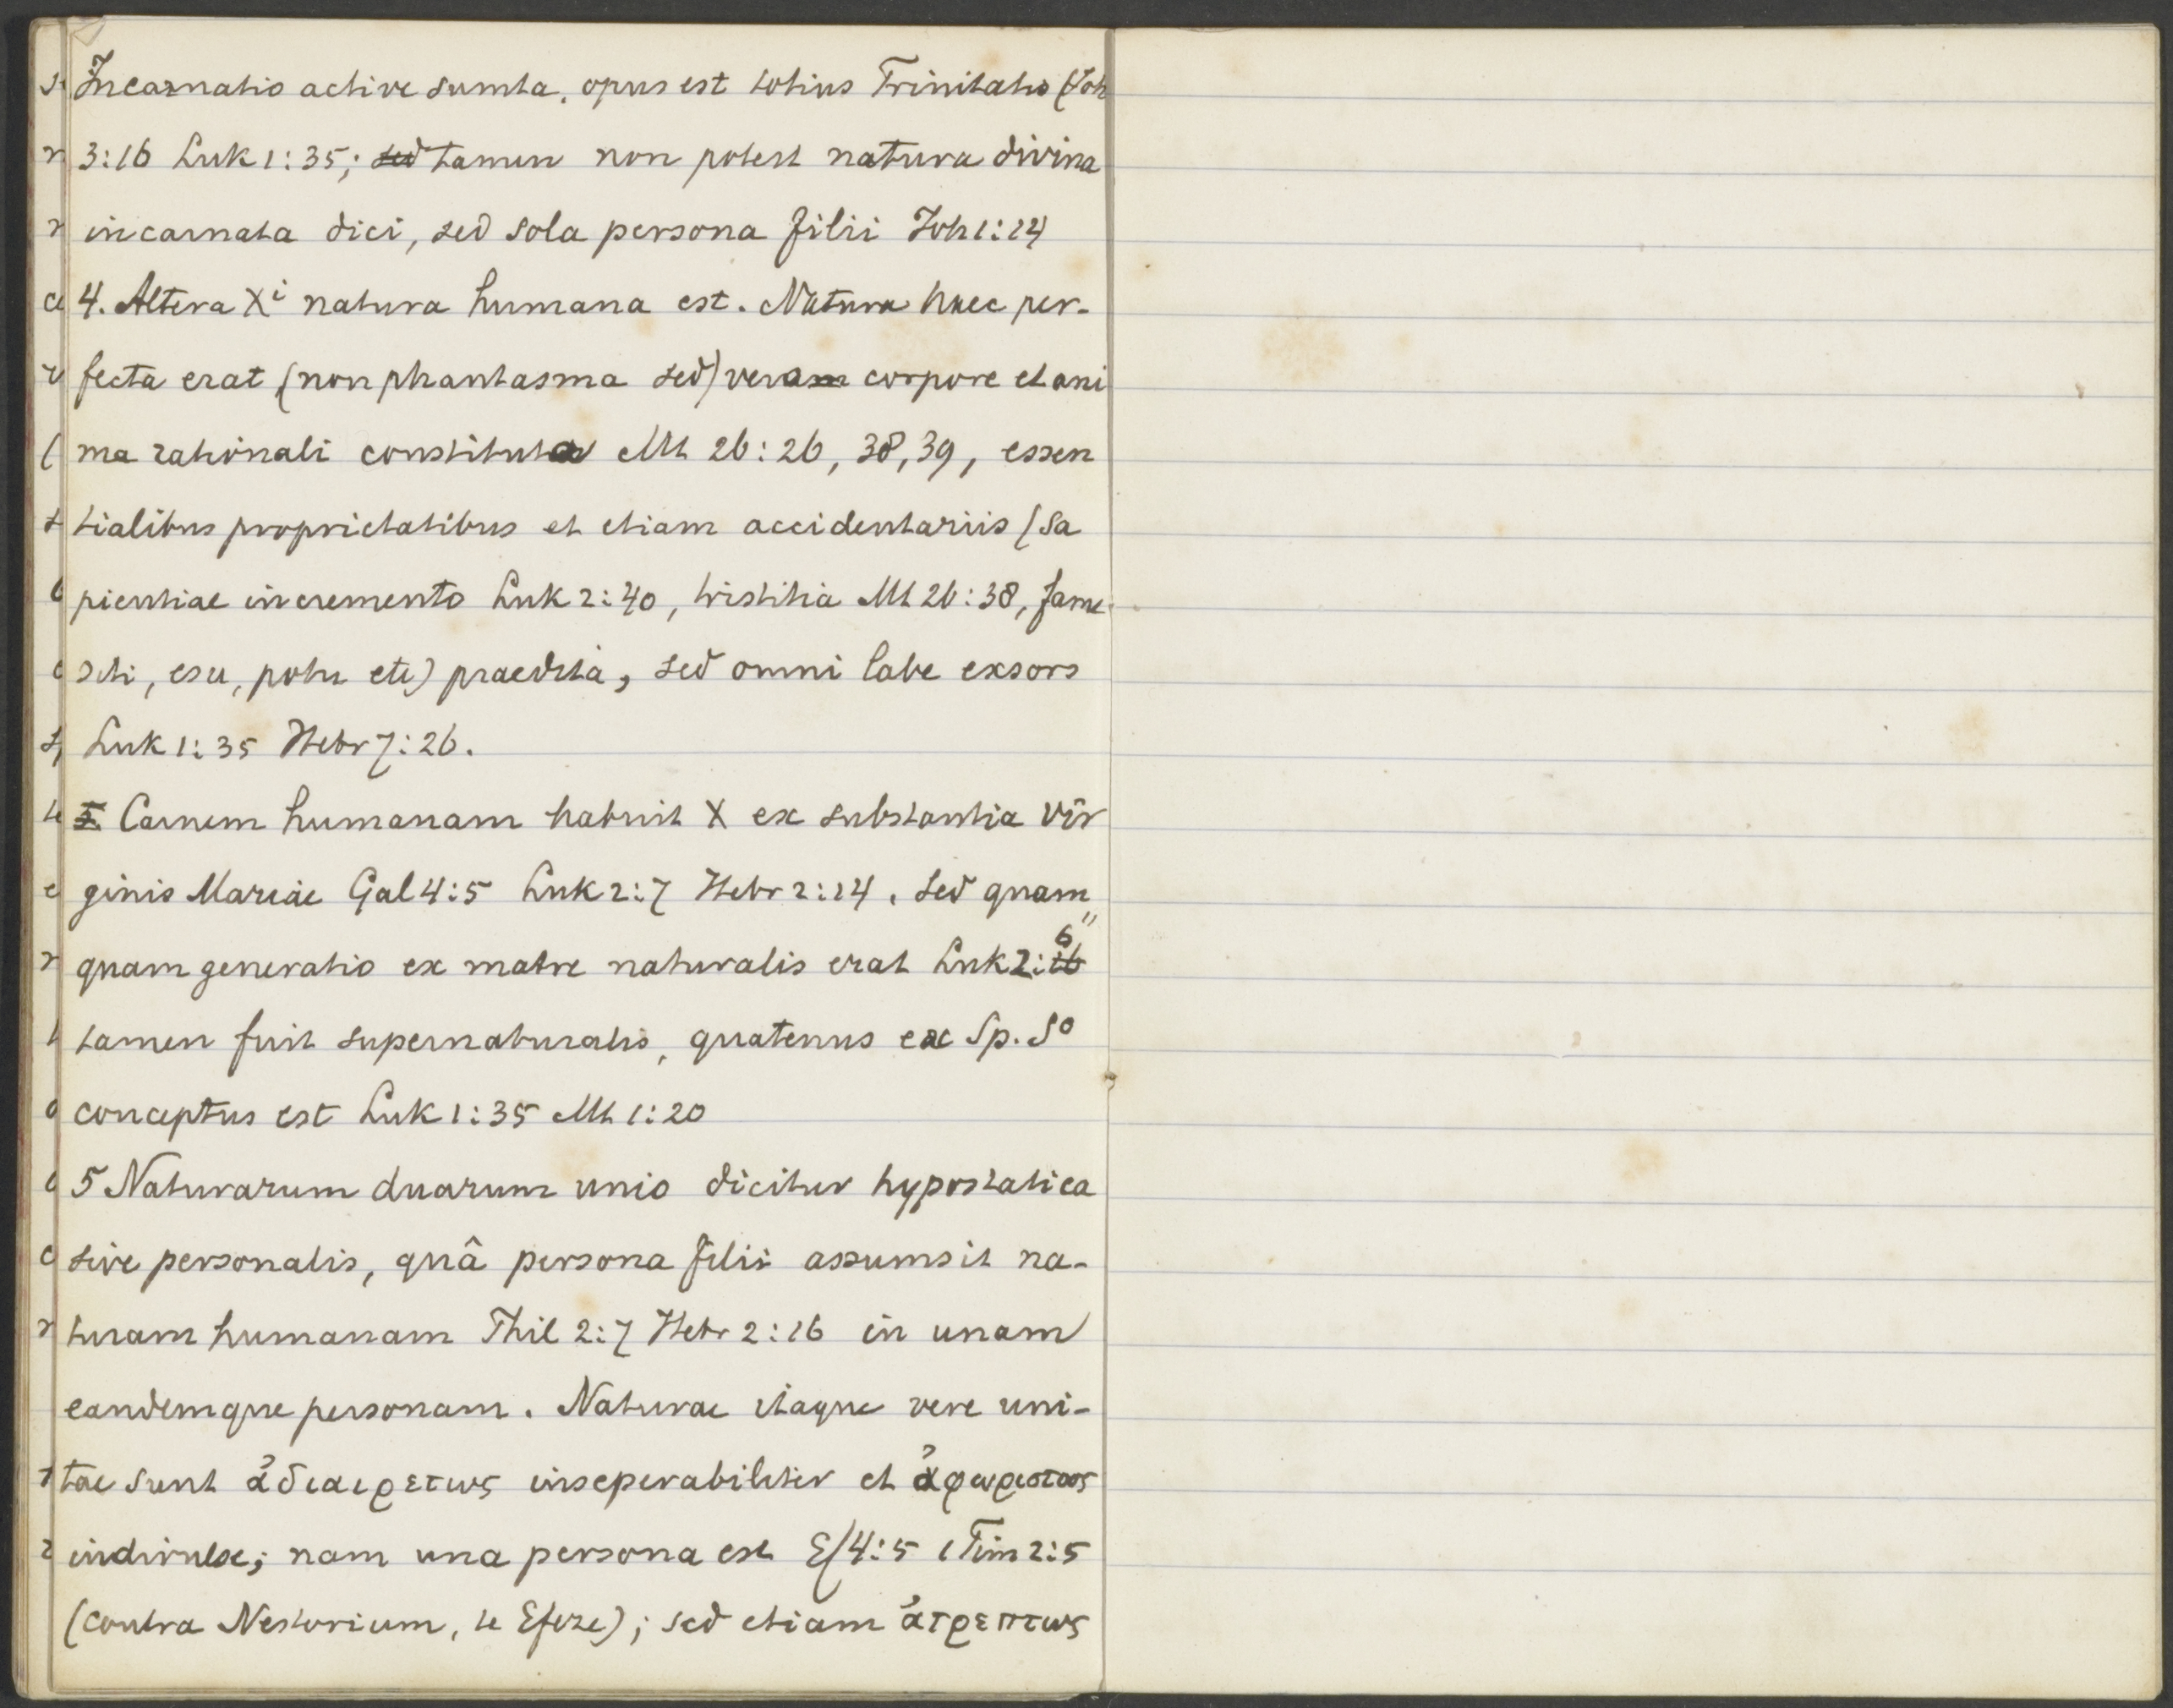 Incarnatio active sumta, opus est totius Trinitatis (Joh
3:16 Luk 1:35; sed tamen non potest natura divina
incarnata dici, sed sola persona filii Joh 1:14
4. Altera Xi natura humana est. Natura haec per-
fecta erat (non phantasma sed) vera corpore et ani
ma rationali constituta Mt 26:26, 38, 39, essen
tialibus proprietatibus et etiam accidentariis (sa
pientiae incremento Luk 2:40, tristitia Mt 26:38, fame
siti, esu, potu etc) praedita, sed omni labe exsors
Luk 1:35 Hebr 7:26.
5. Carnem humanam habuit X ex substantia Vir
ginis Mariae Gal 4:5 Luk 2:7 Hebr 2:14. sed quam
quam generatio ex matre naturalis erat Luk 2:6
tamen fuit supernaturalis, quatenus ex Sp. So
conceptus est Luk 1:35 Mt 1:20
5 Naturarum duarum unio dicitur hypostatica
sive personalis, quâ persona filii assumsit na-
turam humanam Phil 2:7 Hebr 2:16 in unam
eandemque personam. Naturae itaque vere uni-
tae sunt ἀδιαιρετως inseperabiliter et ἀχωριστως
indivulse; nam una persona est Ef 4:5 1 Tim 2:5
(contra Nestorium, te Efeze); sed etiam ἀτρεπτως